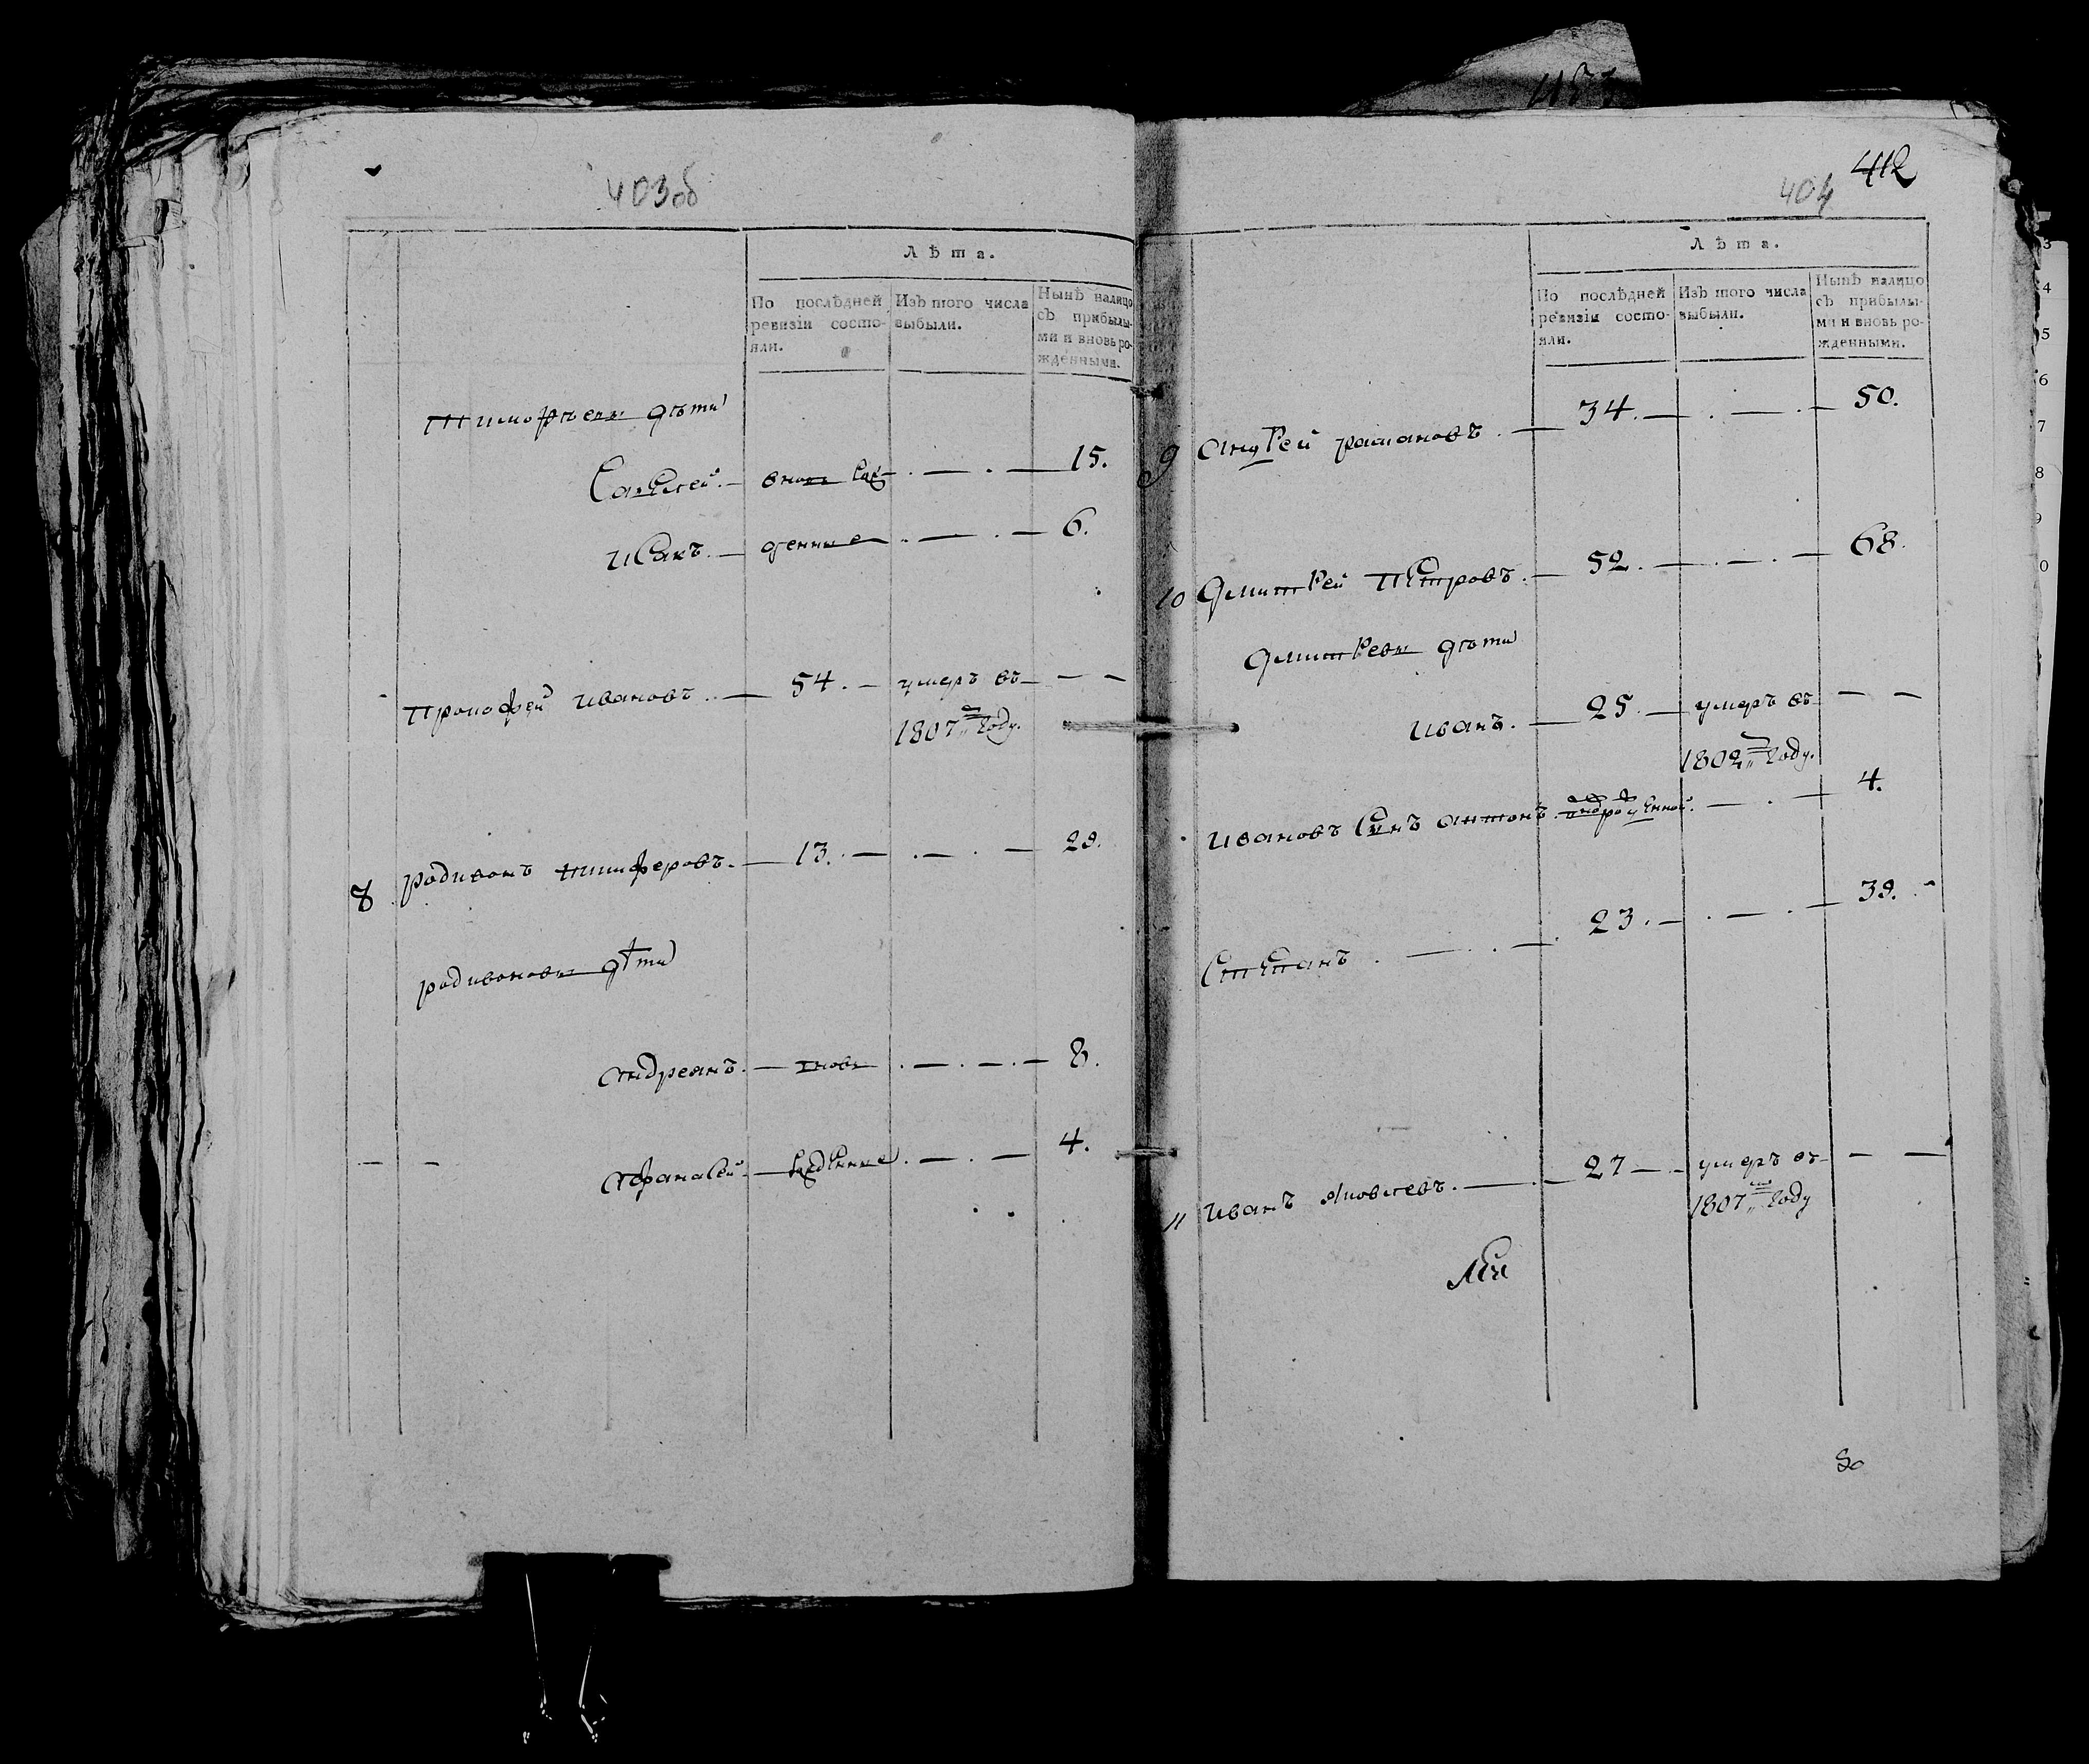 403об
Лѣта.
По послѣдней ревизіи состояли.
Изъ того числа выбыли.
Нынѣ налицо съ прибылыми и вновь рожденными.
Тимофѣевы дѣти
Савелей. 15.
Исакъ. 6.
Прокофей Ивановъ 54. умеръ въ
1807 году.
8 Родивонъ Никифоровъ 13. 29.
Родивоновы дѣти
Андреянъ вновь 8.
Афанасей рожденные 4.
404 412
Лѣта.
По послѣдней ревизіи состояли.
Изъ того числа выбыли.
Нынѣ налицо съ прибылыми и вновь рожденными.
9 Андрей Рамановъ 34. 50.
10 Дмитрей Петровъ 52. 68.
Дмитревы дѣти
Иванъ. 25. умеръ въ
1802 году.
Ивановъ сынъ Антонъ 4.
Степанъ 23. 39.
11 Иванъ Яковлевъ. 27 умеръ въ
1807 году